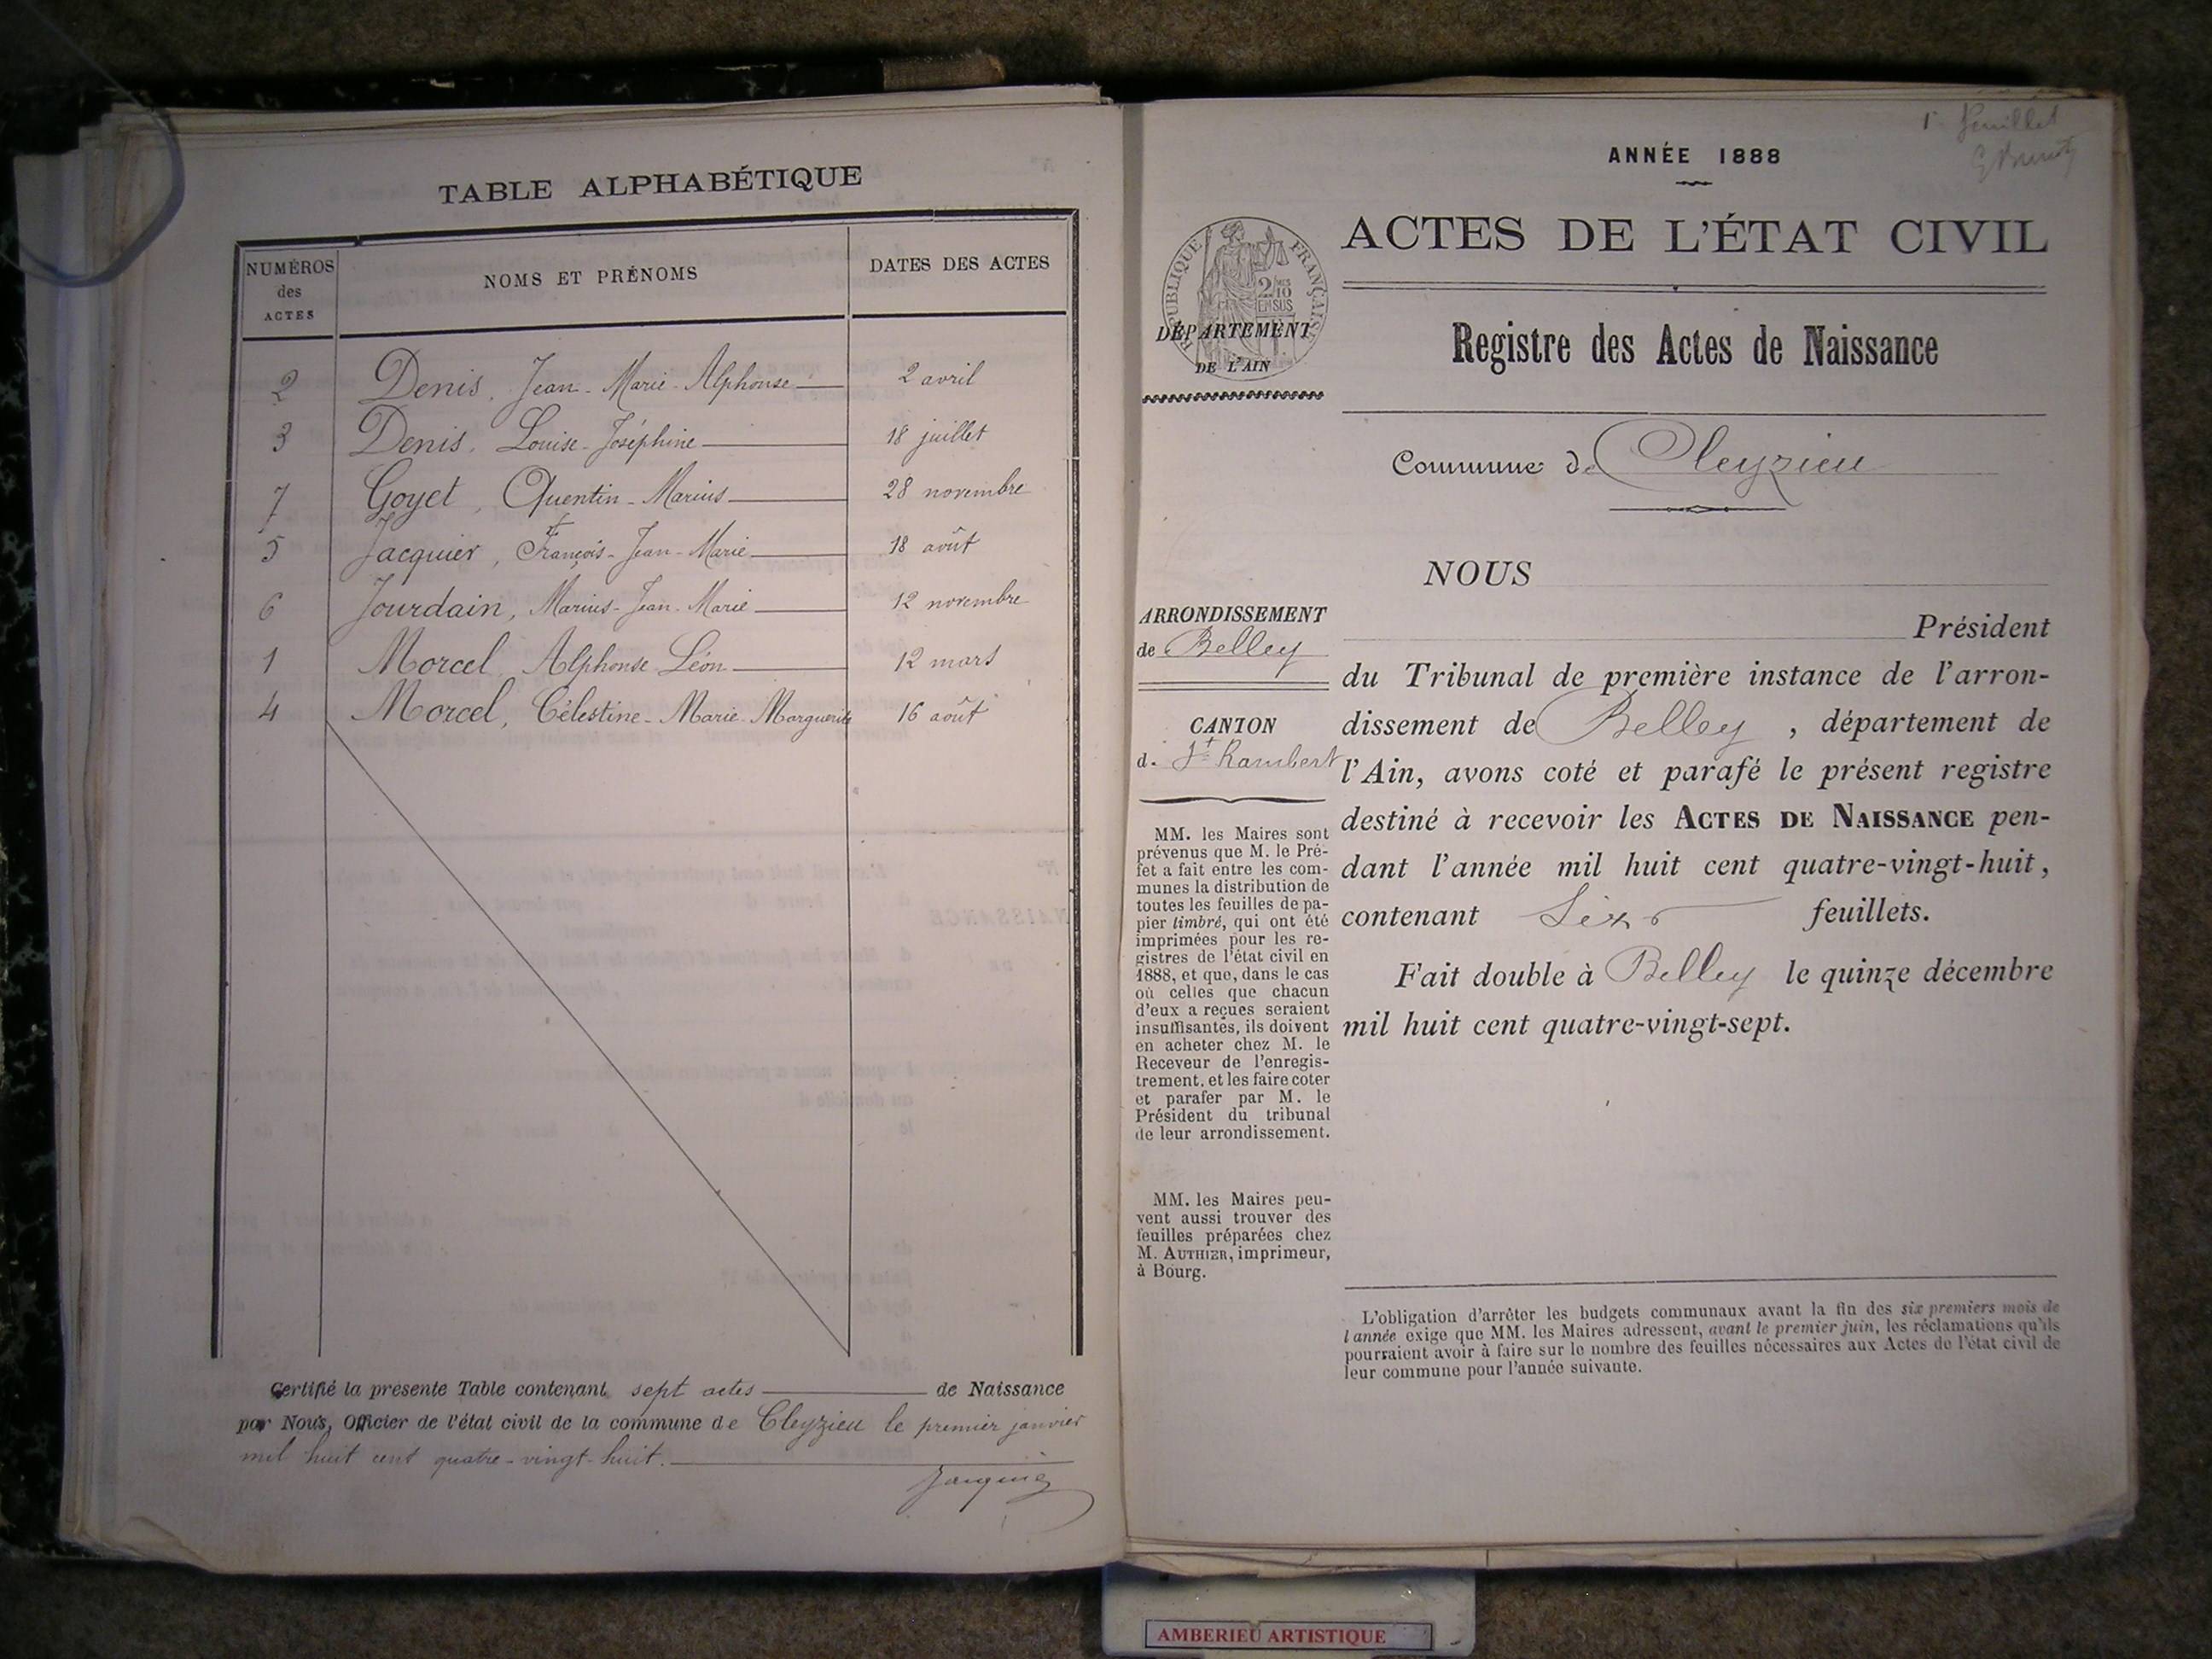 TABLE ALPHABÉTIQUE
NUMÉROS des ACTES
NOMS ET PRÉNOMS
DATES DES ACTES
2 Denis, Jean-Marie-Alphonse 2 avril
3 Denis, Louise-Joséphine 18 juillet
7 Goyet, Quentin-Marius 28 novembre
5 Jacquier, François-Jean-Marie 18 août
6 Jourdain, Marius-Jean-Marie 12 novembre
1 Morcel, Alphonse Léon 12 mars
4 Morcel, Célestine-Marie-Marguerite 16 août
Certifié la présente Table contenant sept actes de Naissance
par Nous, Officier de l'état civil de la commune de Cleyzieu le premier janvier
mil huit cent quatre-vingt-huit.
Jacquier
1r feuillet
ANNÉE 1888
ACTES DE L'ÉTAT CIVIL
RÉPUBLIQUE FRANÇAISE
2/10 EN SUS
DÉPARTEMENT
DE L'AIN
Registre des Actes de Naissance
Commune de Cleyzieu
NOUS
Président
du Tribunal de première instance de l'arron-
dissement de Belley, département de
l'Ain, avons coté et parafé le présent registre
destiné à recevoir les ACTES DE NAISSANCE pen-
dant l'année mil huit cent quatre-vingt-huit,
contenant Six feuillets.
Fait double à Belley le quinze décembre
mil huit cent quatre-vingt-sept.
ARRONDISSEMENT
de Belley
CANTON
d. St Rambert
MM. les Maires sont
prévenus que M. le Pré-
fet a fait entre les com-
munes la distribution de
toutes les feuilles de pa-
pier timbré, qui ont été
imprimées pour les re-
gistres de l'état civil en
1888, et que, dans le cas
où celles que chacun
d'eux a reçues seraient
insuffisantes, ils doivent
en acheter chez M. le
Receveur de l'enregis-
trement, et les faire coter
et parafer par M. le
Président du tribunal
de leur arrondissement.
MM. les Maires peu-
vent aussi trouver des
feuilles préparées chez
M. AUTHIER, imprimeur,
à Bourg.
L'obligation d'arrêter les budgets communaux avant la fin des six premiers mois de
l'année exige que MM. les Maires adressent, avant le premier juin, les réclamations qu'ils
pourraient avoir à faire sur le nombre des feuilles nécessaires aux Actes de l'état civil de
leur commune pour l'année suivante.
AMBERIEU ARTISTIQUE